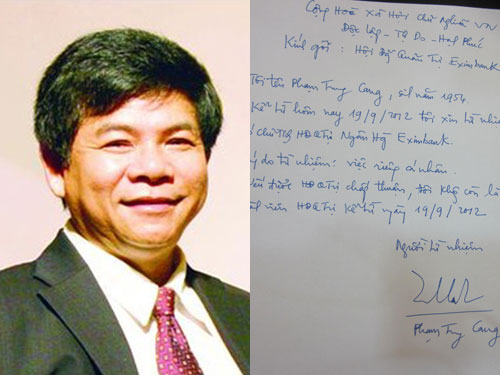 Cộng Hoà Xã Hội Chủ Nghĩa VN
Độc Lập - Tự Do - Hạnh Phúc
Kính gởi : Hội Đồng Quản Trị Eximbank
Tôi tên Phạm Trung Cang, sinh năm 1954
Kể từ hôm nay 19/9/2012 tôi xin từ nhiệm
chủ tịch HĐQTrị Ngân Hg Eximbank.
do từ nhiệm: việc riêng cá nhân.
được HĐQTrị chấp thuận, tôi không còn là
viên HĐQTrị kể từ ngày 19/9/2012
Người từ nhiệm
Phạm Trung Cang